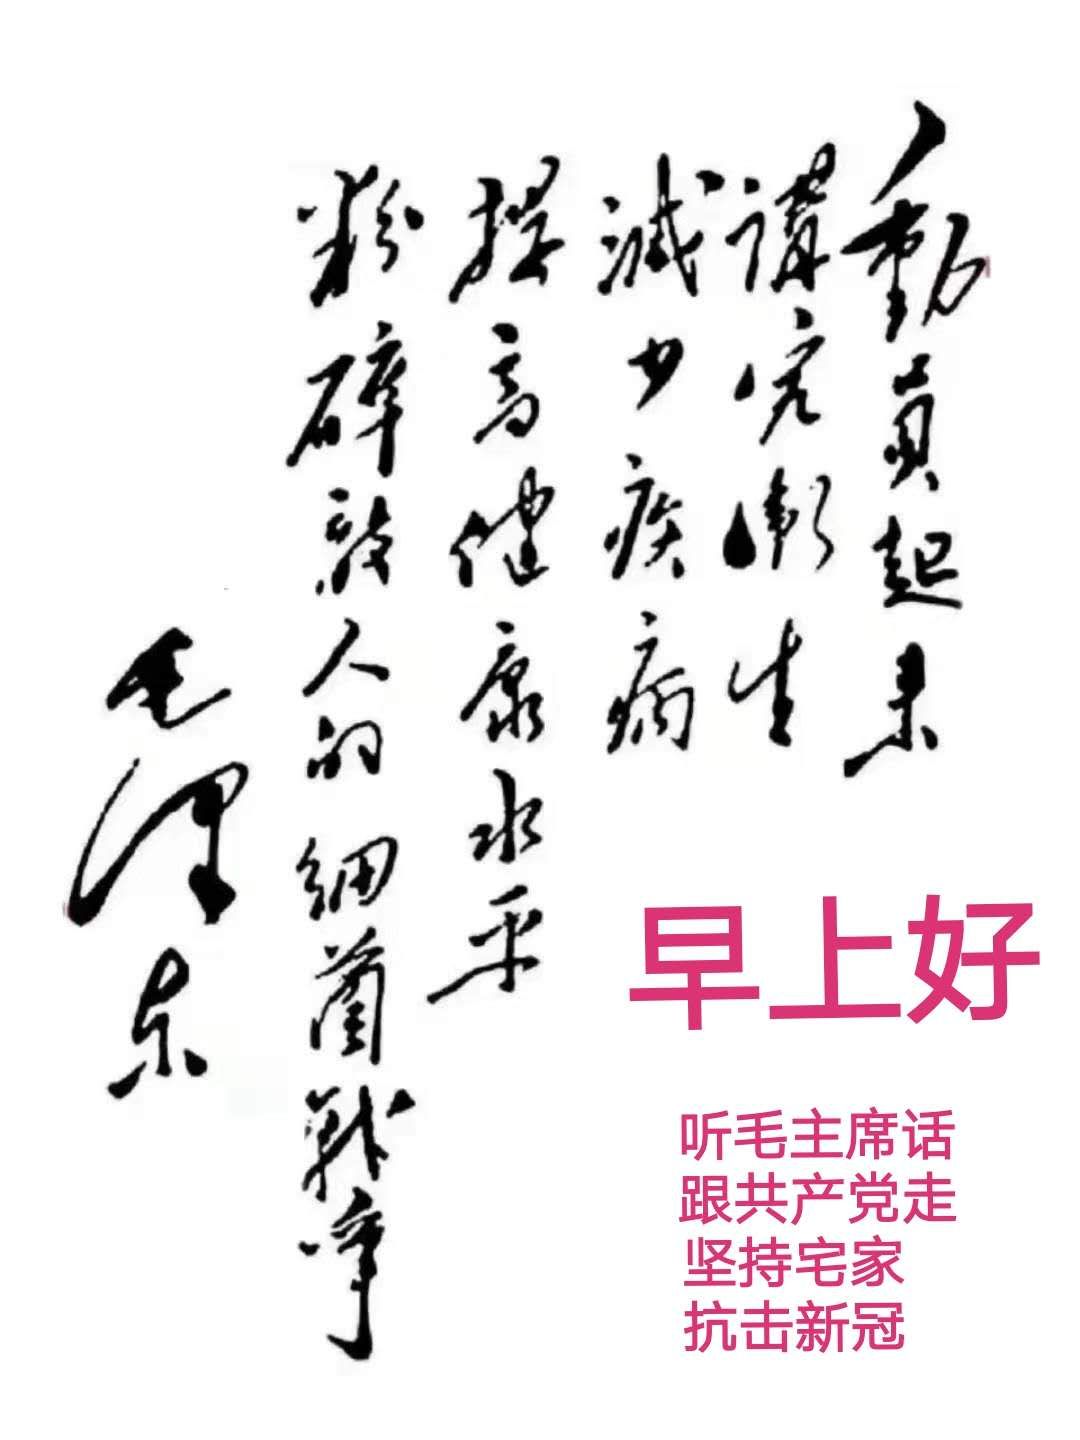 動員起来
講究衛生
減少疾病
提高健康水平
粉碎敌人的细菌戰争
毛澤东
早上好
听毛主席话
跟共产党走
坚持宅家
抗击新冠